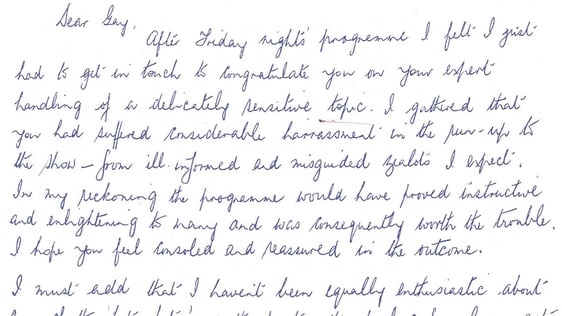 Dear Gay,
After Friday nights' programme I felt I just
had to get in touch to congratulate you on your expert
handling of a delicately sensitive topic. I gathered that
you had suffered considerable harrassment in the run-up to
the show – from ill-informed and misguided zealots I expect.
In my reckoning the programme would have proved instructive
and enlightening to many and was consequently worth the trouble.
I hope you feel consoled and reassured in the outcome.
I must add that I haven't been equally enthusiastic about